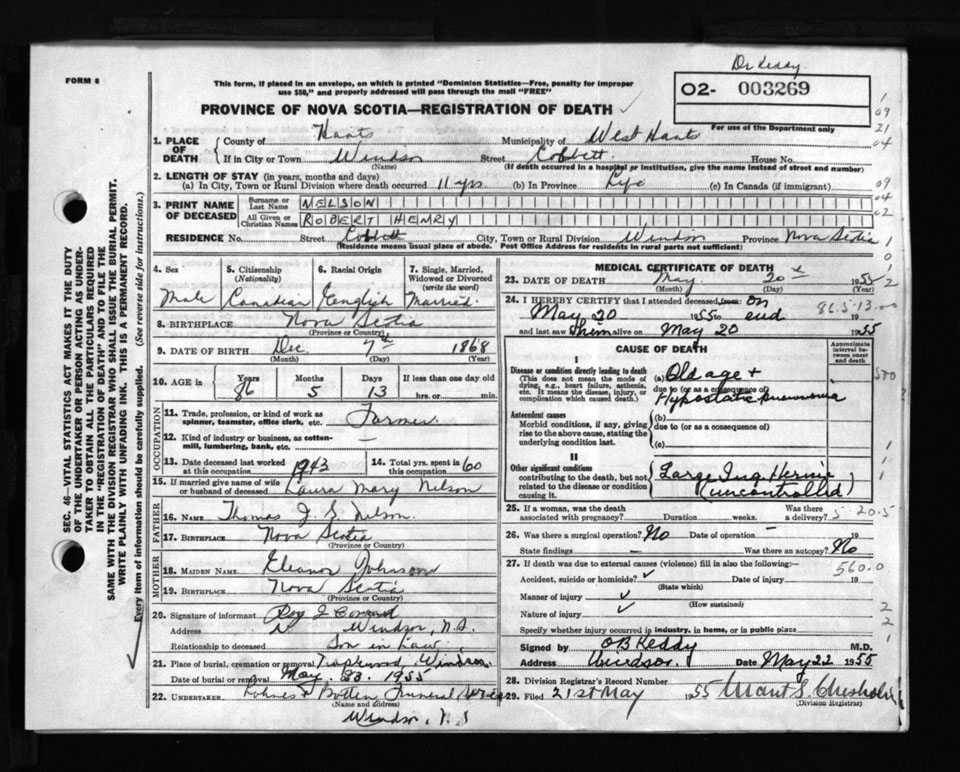 Dr Keddy
FORM 6
This form, if placed in an envelope, on which is printed "Dominion Statistics—Free, penalty for improper
use $50," and properly addressed will pass through the mail "FREE"
O2- 003269
For use of the Department only
PROVINCE OF NOVA SCOTIA—REGISTRATION OF DEATH
1. PLACE OF DEATH
County of Hants Municipality of West Hants
If in City or Town Windsor Street Cobbett House No.
(Name) (If death occurred in a hospital or institution, give the name instead of street and number)
2. LENGTH OF STAY (in years, months and days)
(a) In City, Town or Rural Division where death occurred 11 yrs (b) In Province Life (c) In Canada (if immigrant)
3. PRINT NAME OF DECEASED
Surname or Last Name NELSON
All Given or Christian Names ROBERT HENRY
RESIDENCE No. Street Cobbett City, Town or Rural Division Windsor Province Nova Scotia
(Residence means usual place of abode. Post Office Address for residents in rural parts not sufficient)
4. Sex Male
5. Citizenship (Nationality) Canadian
6. Racial Origin English
7. Single, Married, Widowed or Divorced (write the word) Married.
8. BIRTHPLACE Nova Scotia
(Province or Country)
9. DATE OF BIRTH Dec. 7th 1868
(Month) (Day) (Year)
10. AGE in Years 86 Months 5 Days 13 If less than one day
hrs. or min.
OCCUPATION
11. Trade, profession, or kind of work as
spinner, teamster, office clerk, etc. Farmer.
12. Kind of industry or business, as cotton-
mill, lumbering, bank, etc. —
13. Date deceased last worked
at this occupation 1943
14. Total yrs. spent in
this occupation 60
15. If married give name of wife
or husband of deceased Laura Mary Nelson
FATHER
16. NAME Thomas J. S. Nelson.
17. BIRTHPLACE Nova Scotia
(Province or Country)
MOTHER
18. MAIDEN NAME Eleanor Johnson
19. BIRTHPLACE Nova Scotia
(Province or Country)
20. Signature of informant Roy
Address Windsor, N.S.
Relationship to deceased Son in Law.
21. Place of burial, cremation or removal Windsor.
Date of burial or removal May. 23. 1955
22. UNDERTAKER Funeral
(Name and address)
Windsor, N.S
MEDICAL CERTIFICATE OF DEATH
23. DATE OF DEATH May 20 1955
(Month) (Day) (Year)
24. I HEREBY CERTIFY that I attended deceased from: on 86.5.13.00
May 20 1955 to end 19
and last saw him alive on May 20 1955
CAUSE OF DEATH
Approximate interval between onset and death
I
Disease or condition directly leading to death
(This does not mean the mode of
dying, e.g., heart failure, asthenia,
etc. It means the disease, injury, or
complication which caused death.)
(a) Old age +
due to (or as a consequence of)
Hypostatic pneumonia
Antecedent causes
Morbid conditions, if any, giving
rise to the above cause, stating the
underlying condition last.
(b)
due to (or as a consequence of)
(c)
II
Other significant conditions
contributing to the death, but not
related to the disease or condition
causing it.
Large Ing. Hernie
(uncontrolled)
25. If a woman, was the death
associated with pregnancy? Duration weeks. Was there a delivery?
5 20.5
26. Was there a surgical operation? No Date of operation 19
State findings — Was there an autopsy? No
27. If death was due to external causes (violence) fill in also the following:
560.0
Accident, suicide or homicide? ✓ Date of injury 19
(State which)
Manner of injury ✓
(How sustained)
Nature of injury ✓
Specify whether injury occurred in industry, in home, or in public place
Signed by OB Keddy M.D.
Address Windsor. Date May 22 1955
28. Division Registrar's Record Number
29. Filed 21st May 1955
(Division Registrar)
SEC. 46—VITAL STATISTICS ACT MAKES IT THE DUTY
OF THE UNDERTAKER OR PERSON ACTING AS UNDER-
TAKER TO OBTAIN ALL THE PARTICULARS REQUIRED
IN THE "REGISTRATION OF DEATH" AND TO FILE THE
SAME WITH THE DIVISION REGISTRAR WHO SHALL ISSUE THE BURIAL PERMIT.
WRITE PLAINLY WITH UNFADING INK. THIS IS A PERMANENT RECORD.
Every item of information should be carefully supplied. (See reverse side for instructions.)